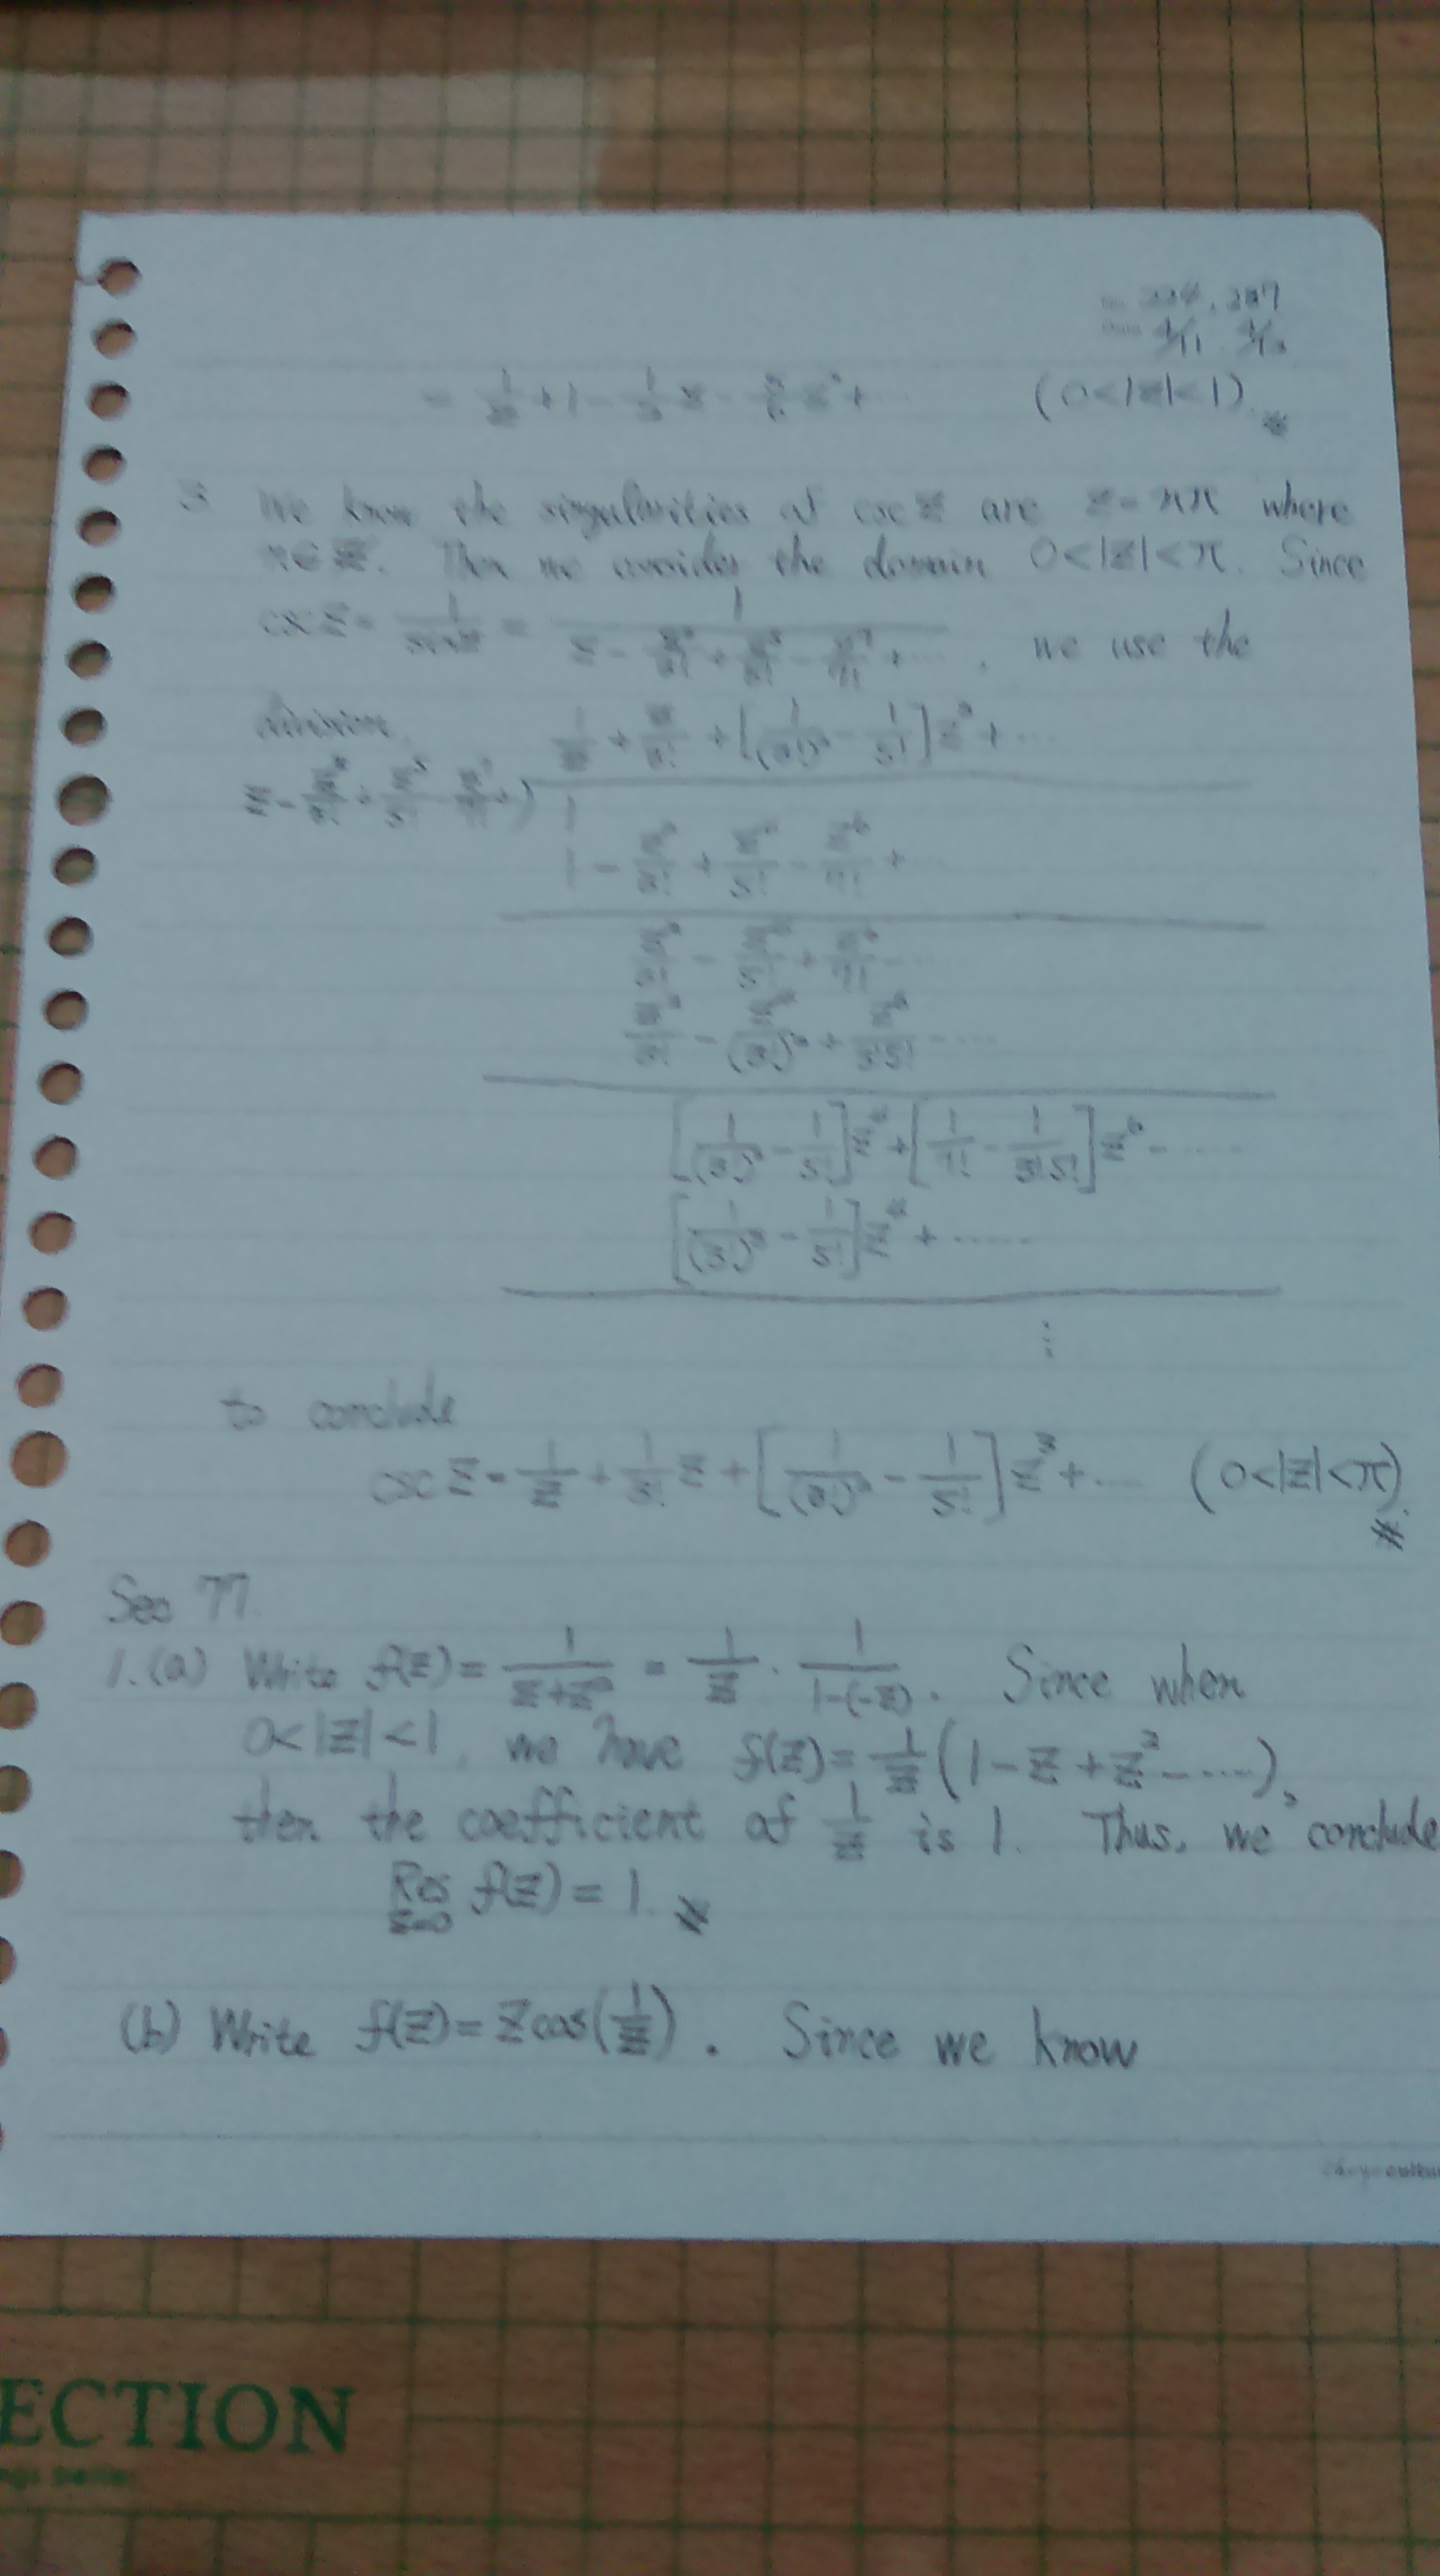 224, 227
= 1/z + 1 - 1/2 z - 5/6 z² + ... (0<|z|<1).
3 We know the singularities of csc z are z = nπ where
n∈ℤ. Then we consider the domain 0<|z|<π. Since
csc z = 1/sin z = 1/(z - z³/3! + z⁵/5! - z⁷/7! + ...), we use the
division.
1/z + z/3! + [1/(3!)² - 1/5!]z³ + ...
z - z³/3! + z⁵/5! - z⁷/7! + ) 1
1 - z²/3! + z⁴/5! - z⁶/7! + ...
z²/3! - z⁴/5! + z⁶/7! ...
z²/3! - z⁴/(3!)² + z⁶/3!5! - ...
[1/(3!)² - 1/5!]z⁴ + [1/7! - 1/3!5!]z⁶ - ...
[1/(3!)² - 1/5!]z⁴ + ...
⋮
to conclude
csc z = 1/z + 1/3! z + [1/(3!)² - 1/5!]z³ + ... (0<|z|<π).
Sec 77.
1.(a) Write f(z) = 1/(z+z²) = 1/z · 1/(1-(-z)). Since when
0<|z|<1, we have f(z) = 1/z (1 - z + z² - ...),
then the coefficient of 1/z is 1. Thus, we conclude
Res z=0 f(z) = 1.
(b) Write f(z) = z cos(1/z). Since we know
ECTION